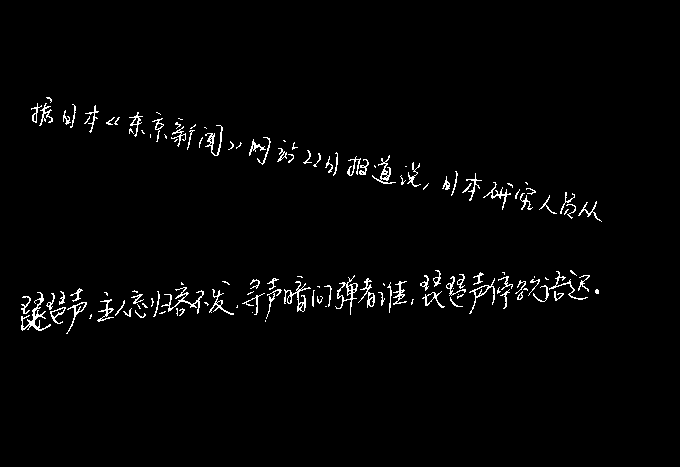 据日本《东京新闻》网站22日报道说,日本研究人员从
琵琶声,主人忘归客不发.寻声暗问弹者谁,琵琶声停欲语迟.